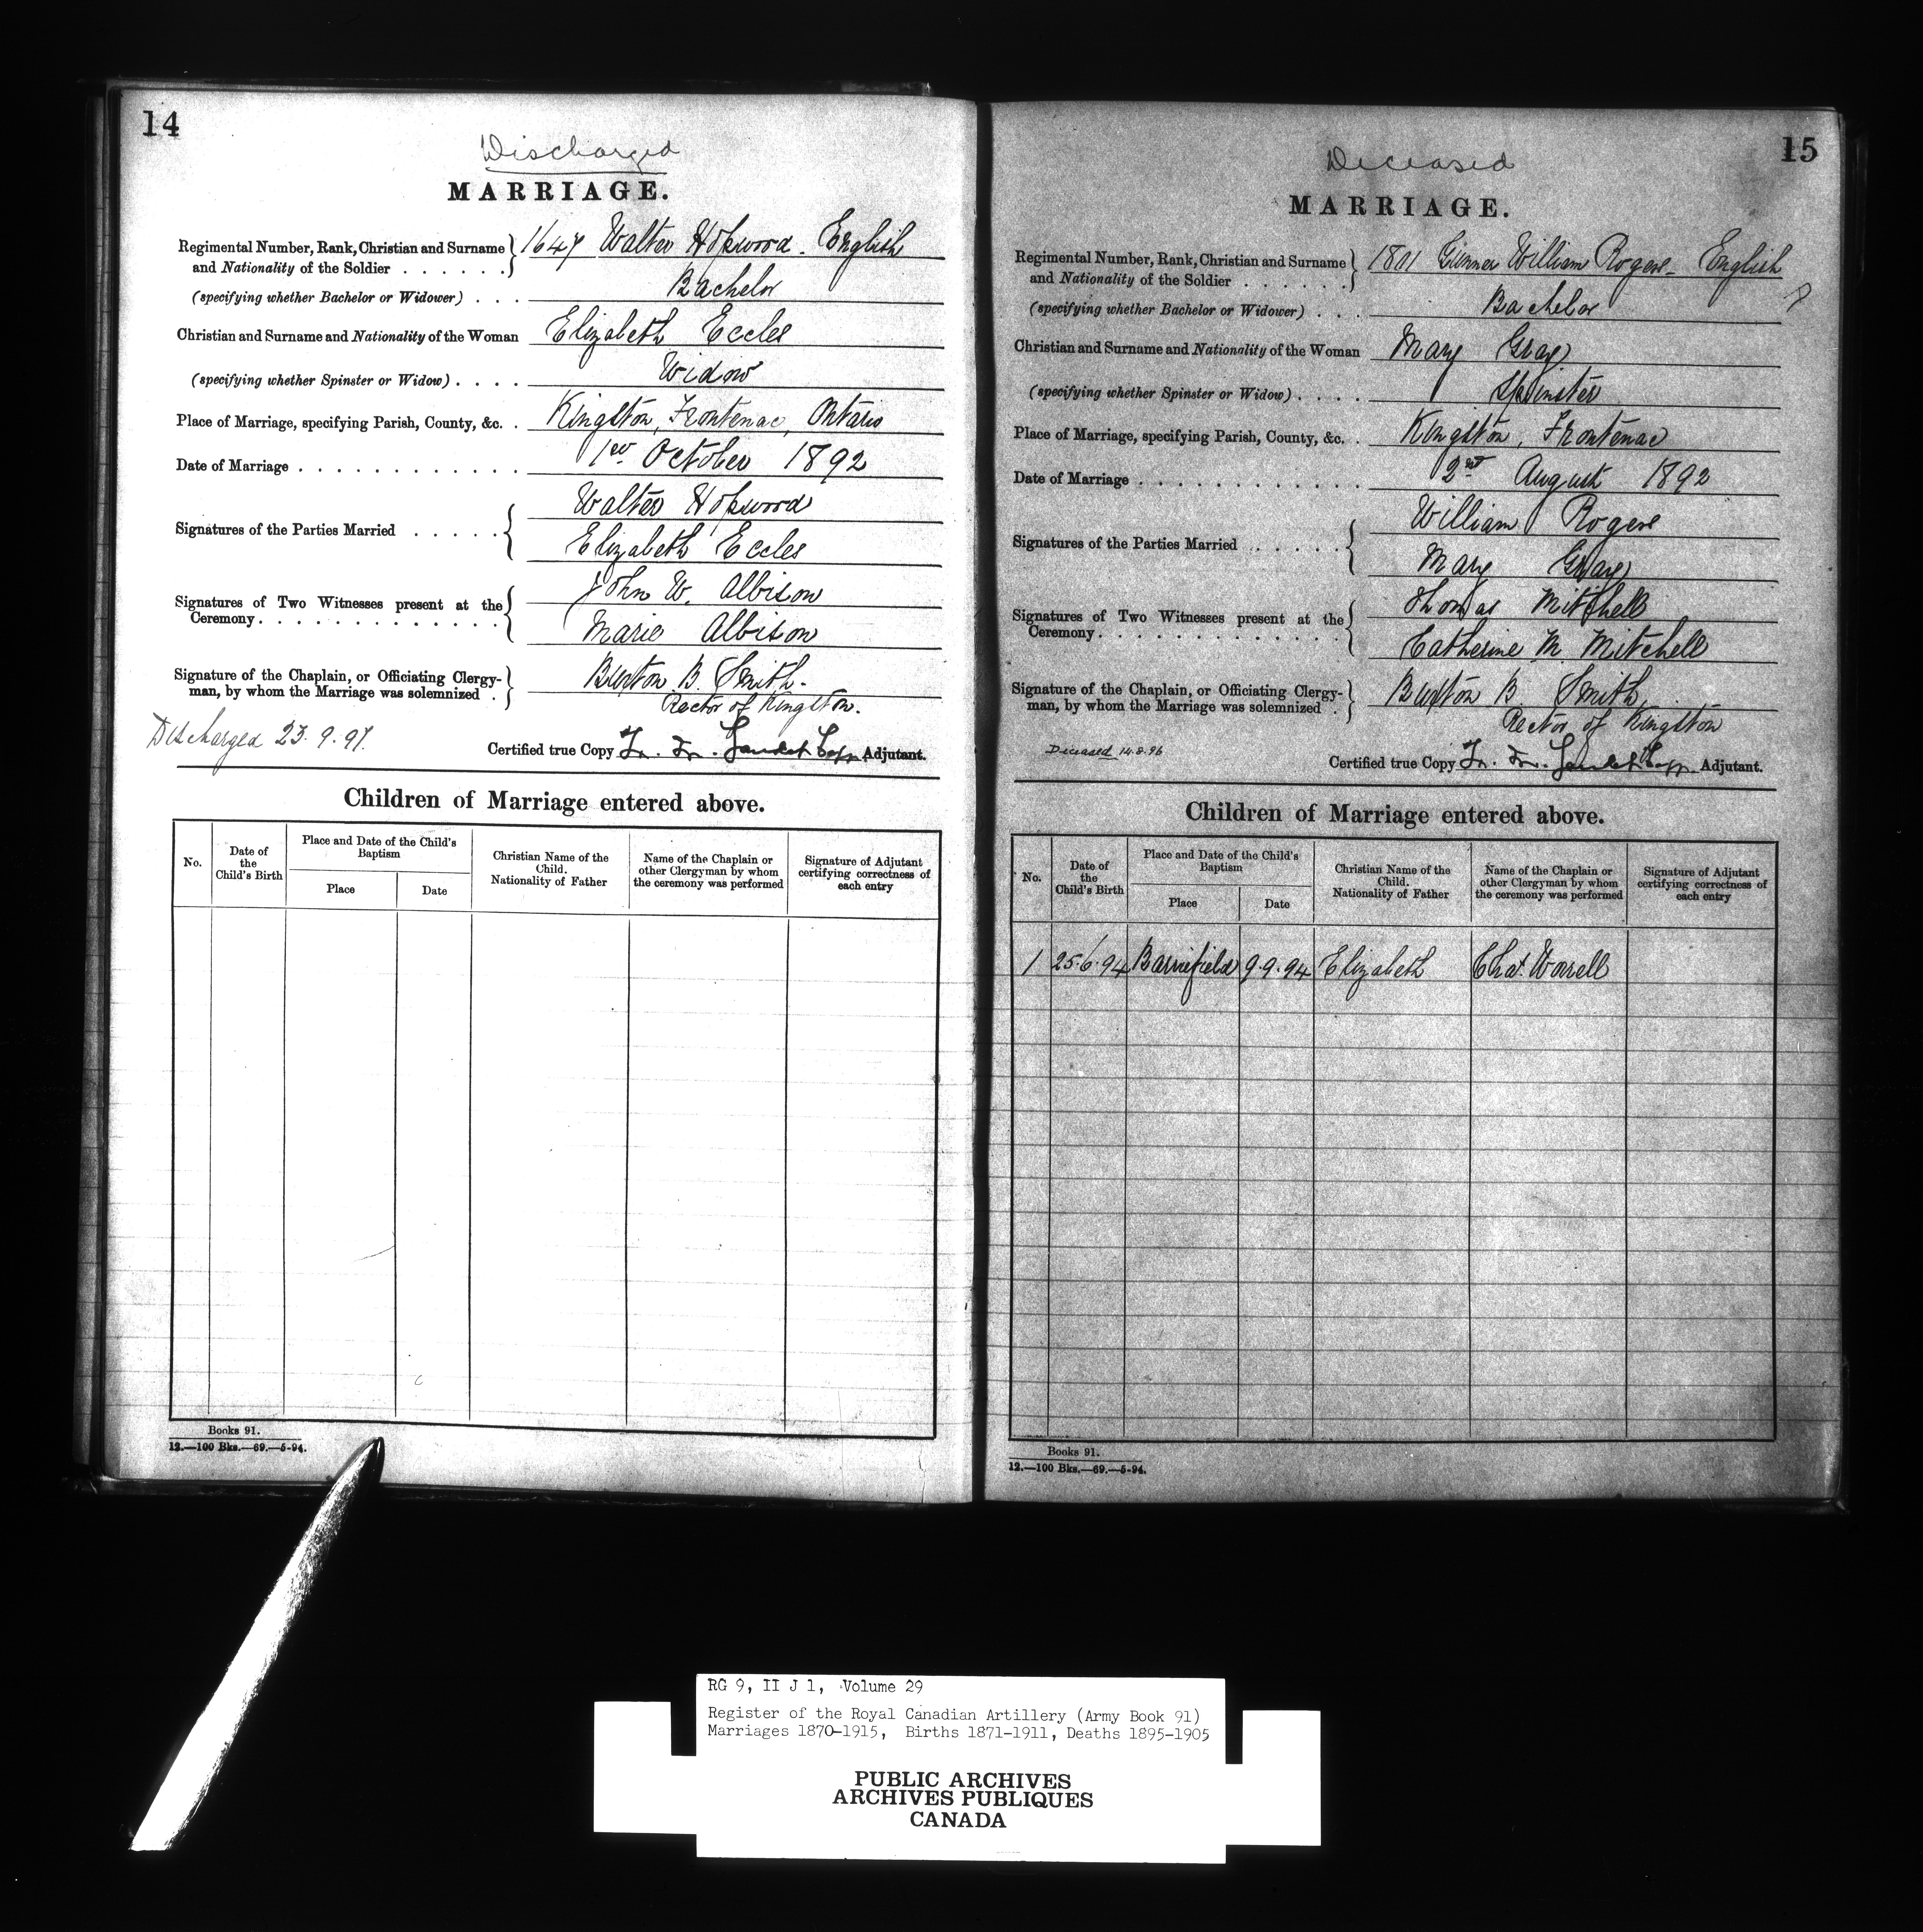 14
Discharged
MARRIAGE.
Regimental Number, Rank, Christian and Surname and Nationality of the Soldier . . . . . . 1647 Walter Hopwood - English
(specifying whether Bachelor or Widower) . . . Bachelor
Christian and Surname and Nationality of the Woman Elizabeth Eccles
(specifying whether Spinster or Widow) . . . . Widow
Place of Marriage, specifying Parish, County, &c. . Kingston, Frontenac, Ontario
Date of Marriage . . . . . . . . . . . . . 1st October 1892
Signatures of the Parties Married . . . . . Walter Hopwood
Elizabeth Eccles
Signatures of Two Witnesses present at the Ceremony. . . . . . . . . . . . . John W. Albison
Marie Albison
Signature of the Chaplain, or Officiating Clergy-
man, by whom the Marriage was solemnized . Buxton B. Smith.
Rector of Kingston.
Discharged 23.9.97.
Certified true Copy Adjutant.
Children of Marriage entered above.
No.
Date of the Child's Birth
Place and Date of the Child's Baptism
Place
Date
Christian Name of the Child. Nationality of Father
Name of the Chaplain or other Clergyman by whom the ceremony was performed
Signature of Adjutant certifying correctness of each entry
Books 91.
12.—100 Bks.—69.—5-94.
15
Deceased
MARRIAGE.
Regimental Number, Rank, Christian and Surname and Nationality of the Soldier . . . . . . 1801 Gunner William Rogers - English
(specifying whether Bachelor or Widower) . . . Bachelor
Christian and Surname and Nationality of the Woman Mary Gray
(specifying whether Spinster or Widow) . . . . Spinster
Place of Marriage, specifying Parish, County, &c. . Kingston, Frontenac
Date of Marriage . . . . . . . . . . . . 2nd August 1892
Signatures of the Parties Married . . . . . . William Rogers
Mary Gray
Signatures of Two Witnesses present at the Ceremony. . . . . . . . . . . . . Thomas Mitchell
Catherine M Mitchell
Signature of the Chaplain, or Officiating Clergy-
man, by whom the Marriage was solemnized . Buxton B Smith,
Rector of Kingston
Deceased 14.8.96
Certified true Copy Adjutant.
Children of Marriage entered above.
No.
Date of the Child's Birth
Place and Date of the Child's Baptism
Place
Date
Christian Name of the Child. Nationality of Father
Name of the Chaplain or other Clergyman by whom the ceremony was performed
Signature of Adjutant certifying correctness of each entry
1 25.6.94 Barriefield 9.9.94 Elizabeth Chas. Worrell
Books 91.
12.—100 Bks.—69.—5-94.
RG 9, II J 1, Volume 29
Register of the Royal Canadian Artillery (Army Book 91)
Marriages 1870-1915, Births 1871-1911, Deaths 1895-1905
PUBLIC ARCHIVES
ARCHIVES PUBLIQUES
CANADA